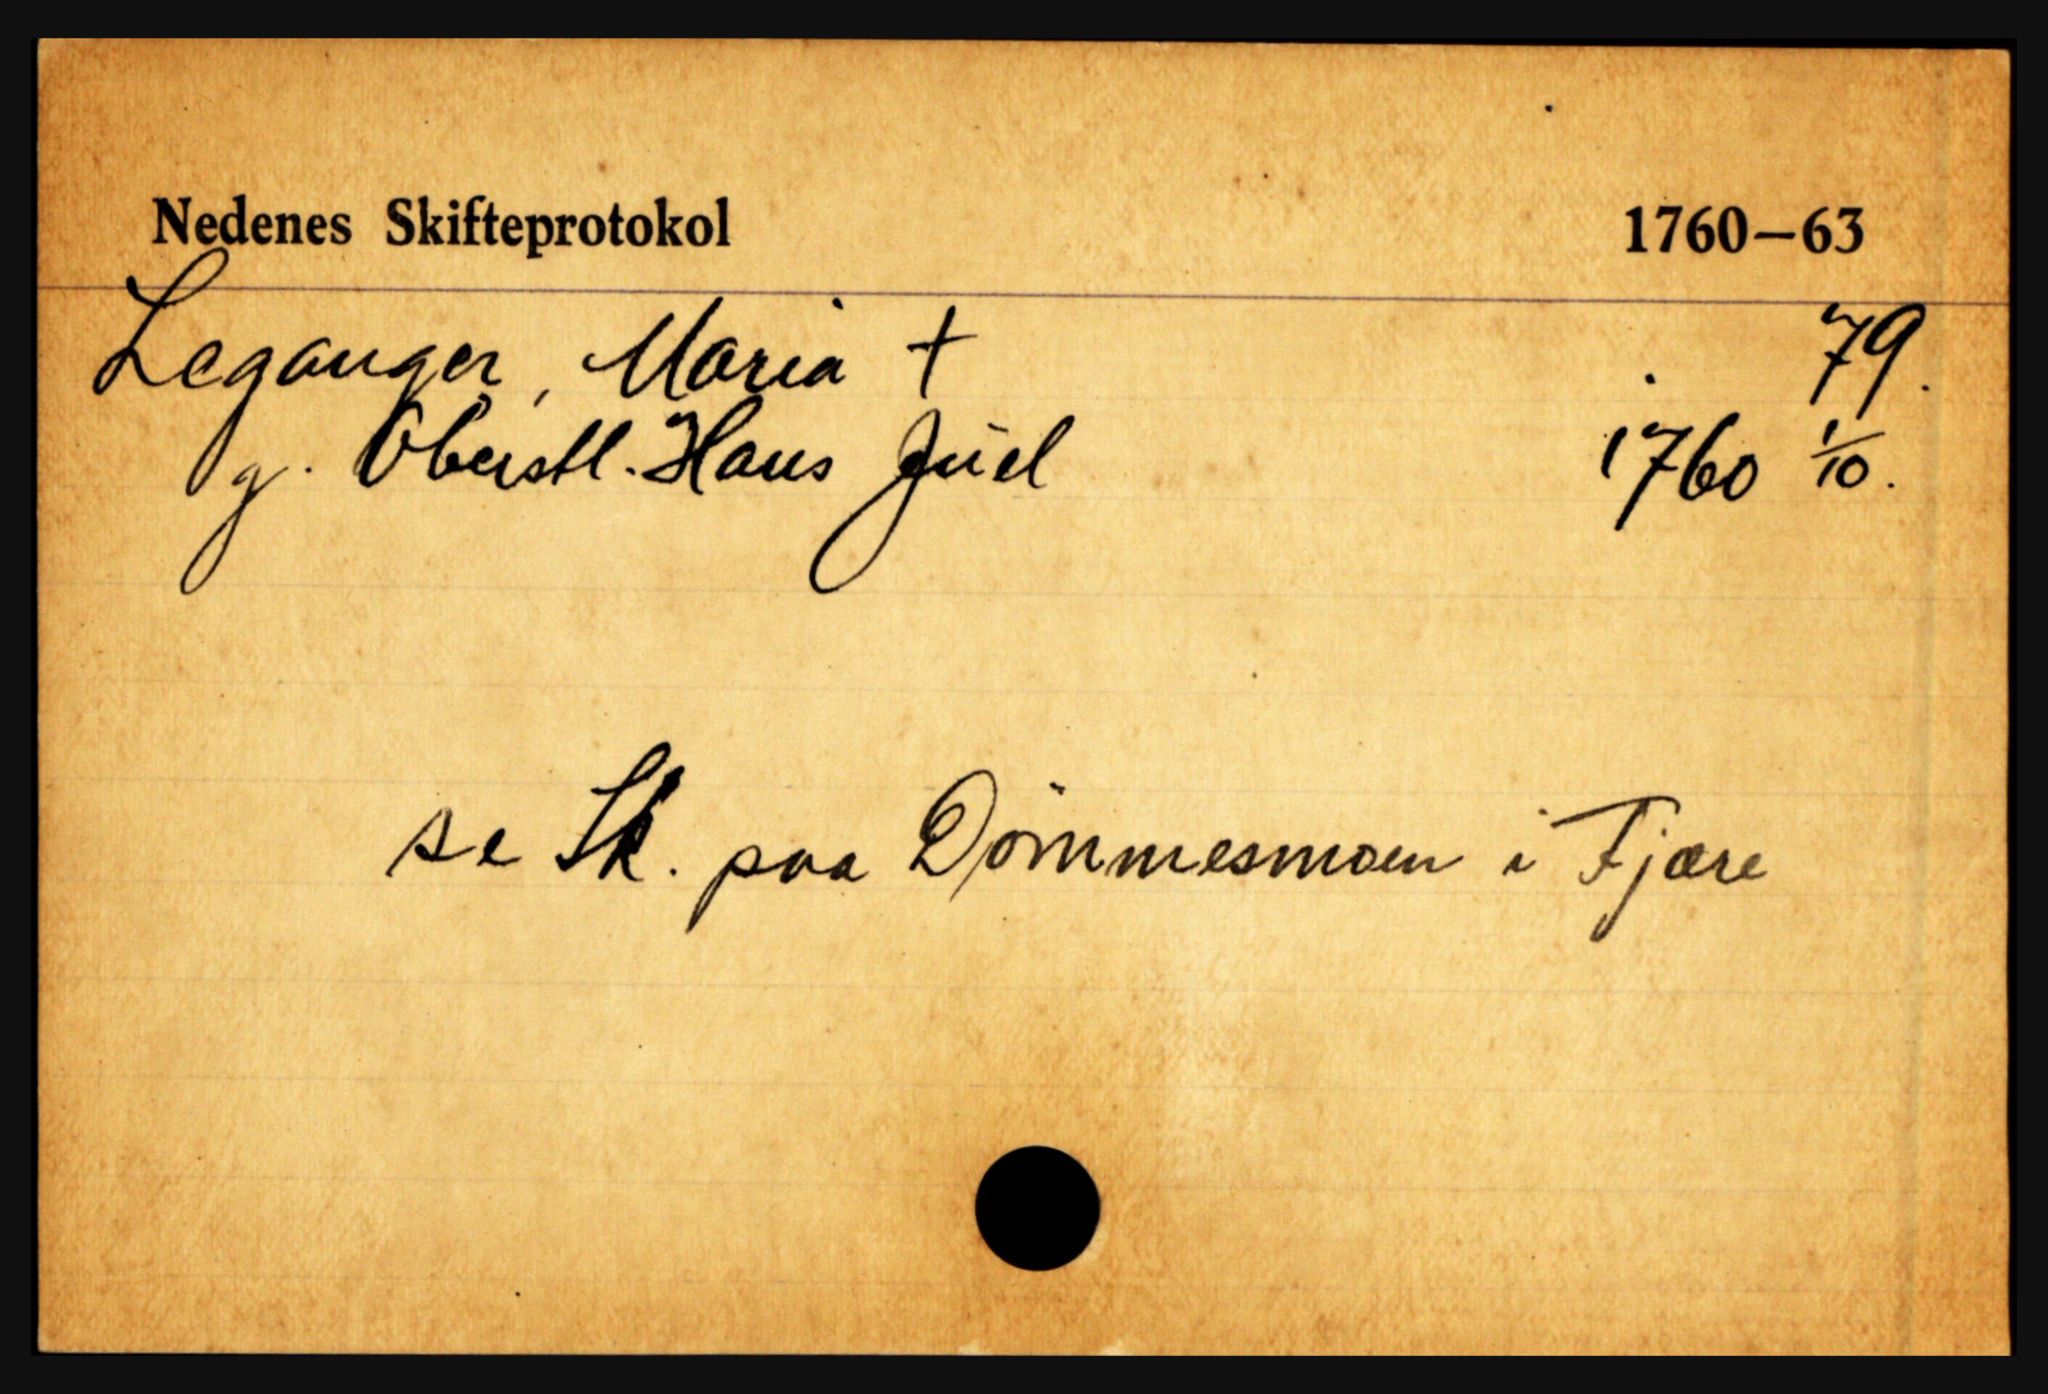 Nedenes Skifteprotokol 1760–63
Leganger, Maria † 79.
g. Oberstl. Hans Juel 1760 1/10.
se Sk. paa Dömmesmoen i Fjære